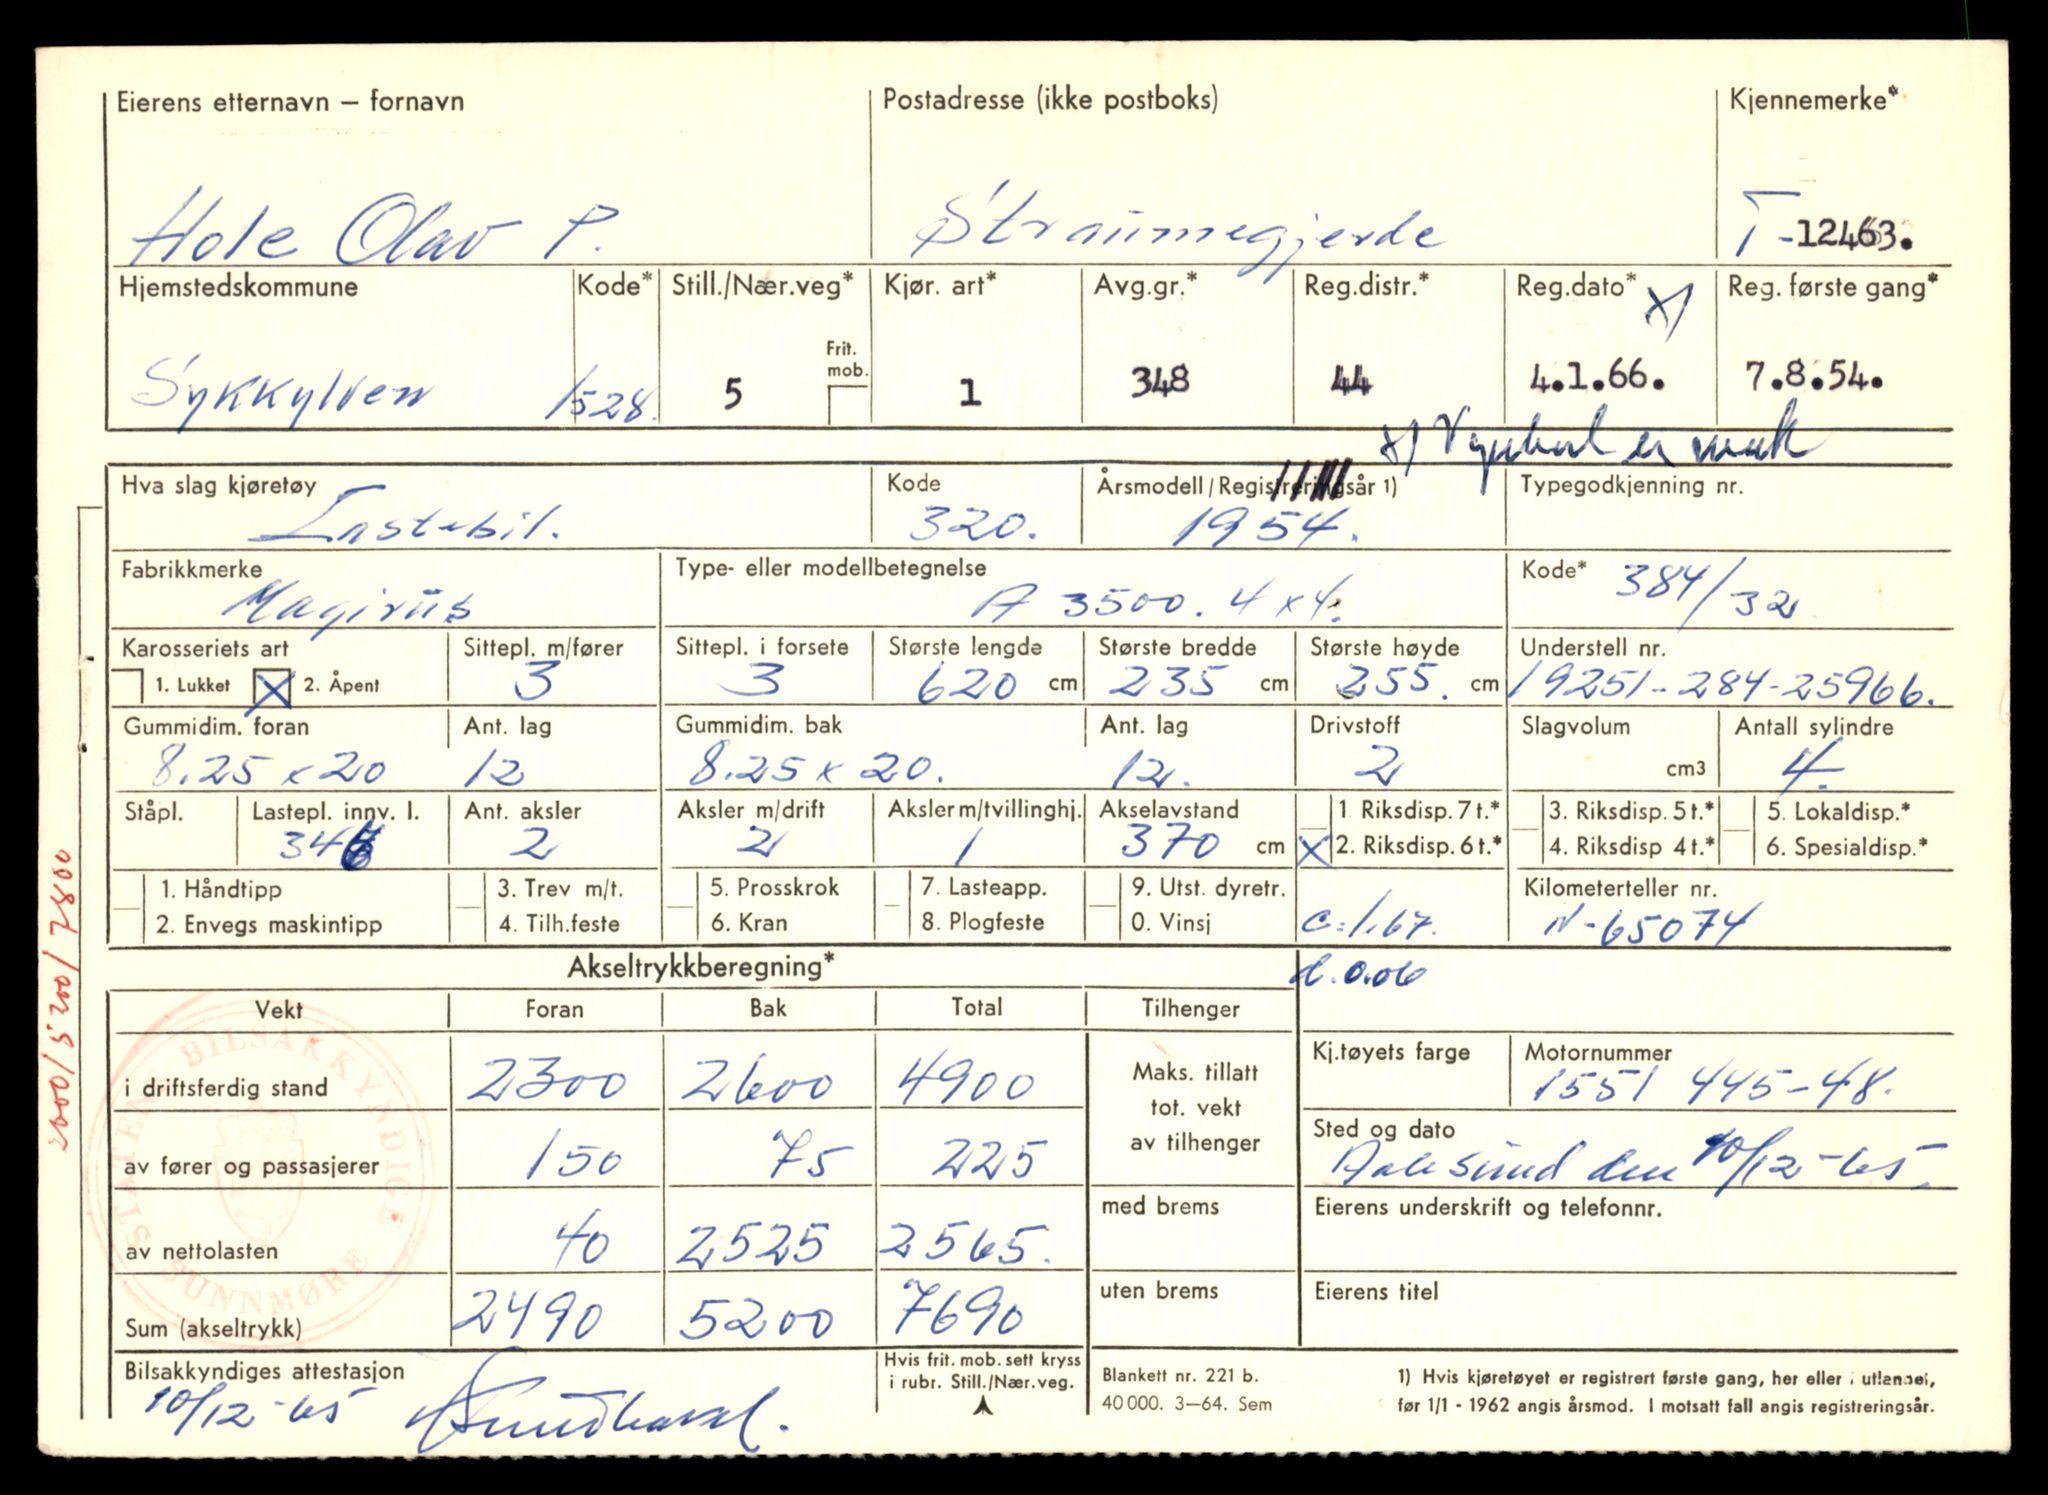 Eierens etternavn – fornavn Postadresse (ikke postboks) Kjennemerke*
Hole Olav P. Straumegjerde T-12463.
Hjemstedskommune Kode* Still./Nær.veg* Kjør. art* Avg.gr.* Reg.distr.* Reg.dato* x) Reg. første gang*
Frit. mob.
Sykkylven 1528. 5 1 348 44 4.1.66. 7.8.54.
x)
Hva slag kjøretøy Kode Årsmodell/Registreringsår 1) Typegodkjenning nr.
Lastebil. 320. 1954.
Fabrikkmerke Type- eller modellbetegnelse Kode* 384/32
Magirus A 3500. 4x4.
Karosseriets art Sittepl. m/fører Sittepl. i forsete Største lengde Største bredde Største høyde Understell nr.
1. Lukket X 2. Åpent 3 3 620 cm 235 cm 255. cm 19251-284-25966.
Gummidim. foran Ant. lag Gummidim. bak Ant. lag Drivstoff Slagvolum Antall sylindre
8.25 x 20 12 8.25 x 20. 12. 2 cm3 4.
Ståpl. Lastepl. innv. l. Ant. aksler Aksler m/drift Aksler m/tvillinghj. Akselavstand 1 Riksdisp. 7 t.* 3. Riksdisp. 5 t.* 5. Lokaldisp.*
2 2 1 370 cm X 2. Riksdisp. 6 t.* 4. Riksdisp 4 t.* 6. Spesialdisp.*
1. Håndtipp 3. Trev m/t. 5. Prosskrok 7. Lasteapp. 9. Utst. dyretr. Kilometerteller nr.
2. Envegs maskintipp 4. Tilh.feste 6. Kran 8. Plogfeste 0. Vinsj c=1.67. N-65074
Akseltrykkberegning* d.0.06
Vekt Foran Bak Total Tilhenger
i driftsferdig stand 2300 2600 4900 Maks. tillatt tot. vekt av tilhenger
Kj.tøyets farge Motornummer
1551 445-48.
av fører og passasjerer 150 75 225
Sted og dato
Aalesund den 10/12-65.
av nettolasten 40 2525 2565. med brems
Eierens underskrift og telefonnr.
Sum (akseltrykk) 2490 5200 7690 uten brems
Eierens titel
Bilsakkyndiges attestasjon
10/12-65
Hvis frit. mob. sett kryss
i rubr. Still./Nær.veg.
Blankett nr. 221 b.
40 000. 3–64. Sem
1) Hvis kjøretøyet er registrert første gang, her eller i utlandet,
før 1/1 - 1962 angis årsmod. I motsatt fall angis registreringsår.
STATENS BILSAKKYNDIGE
SUNNMØRE